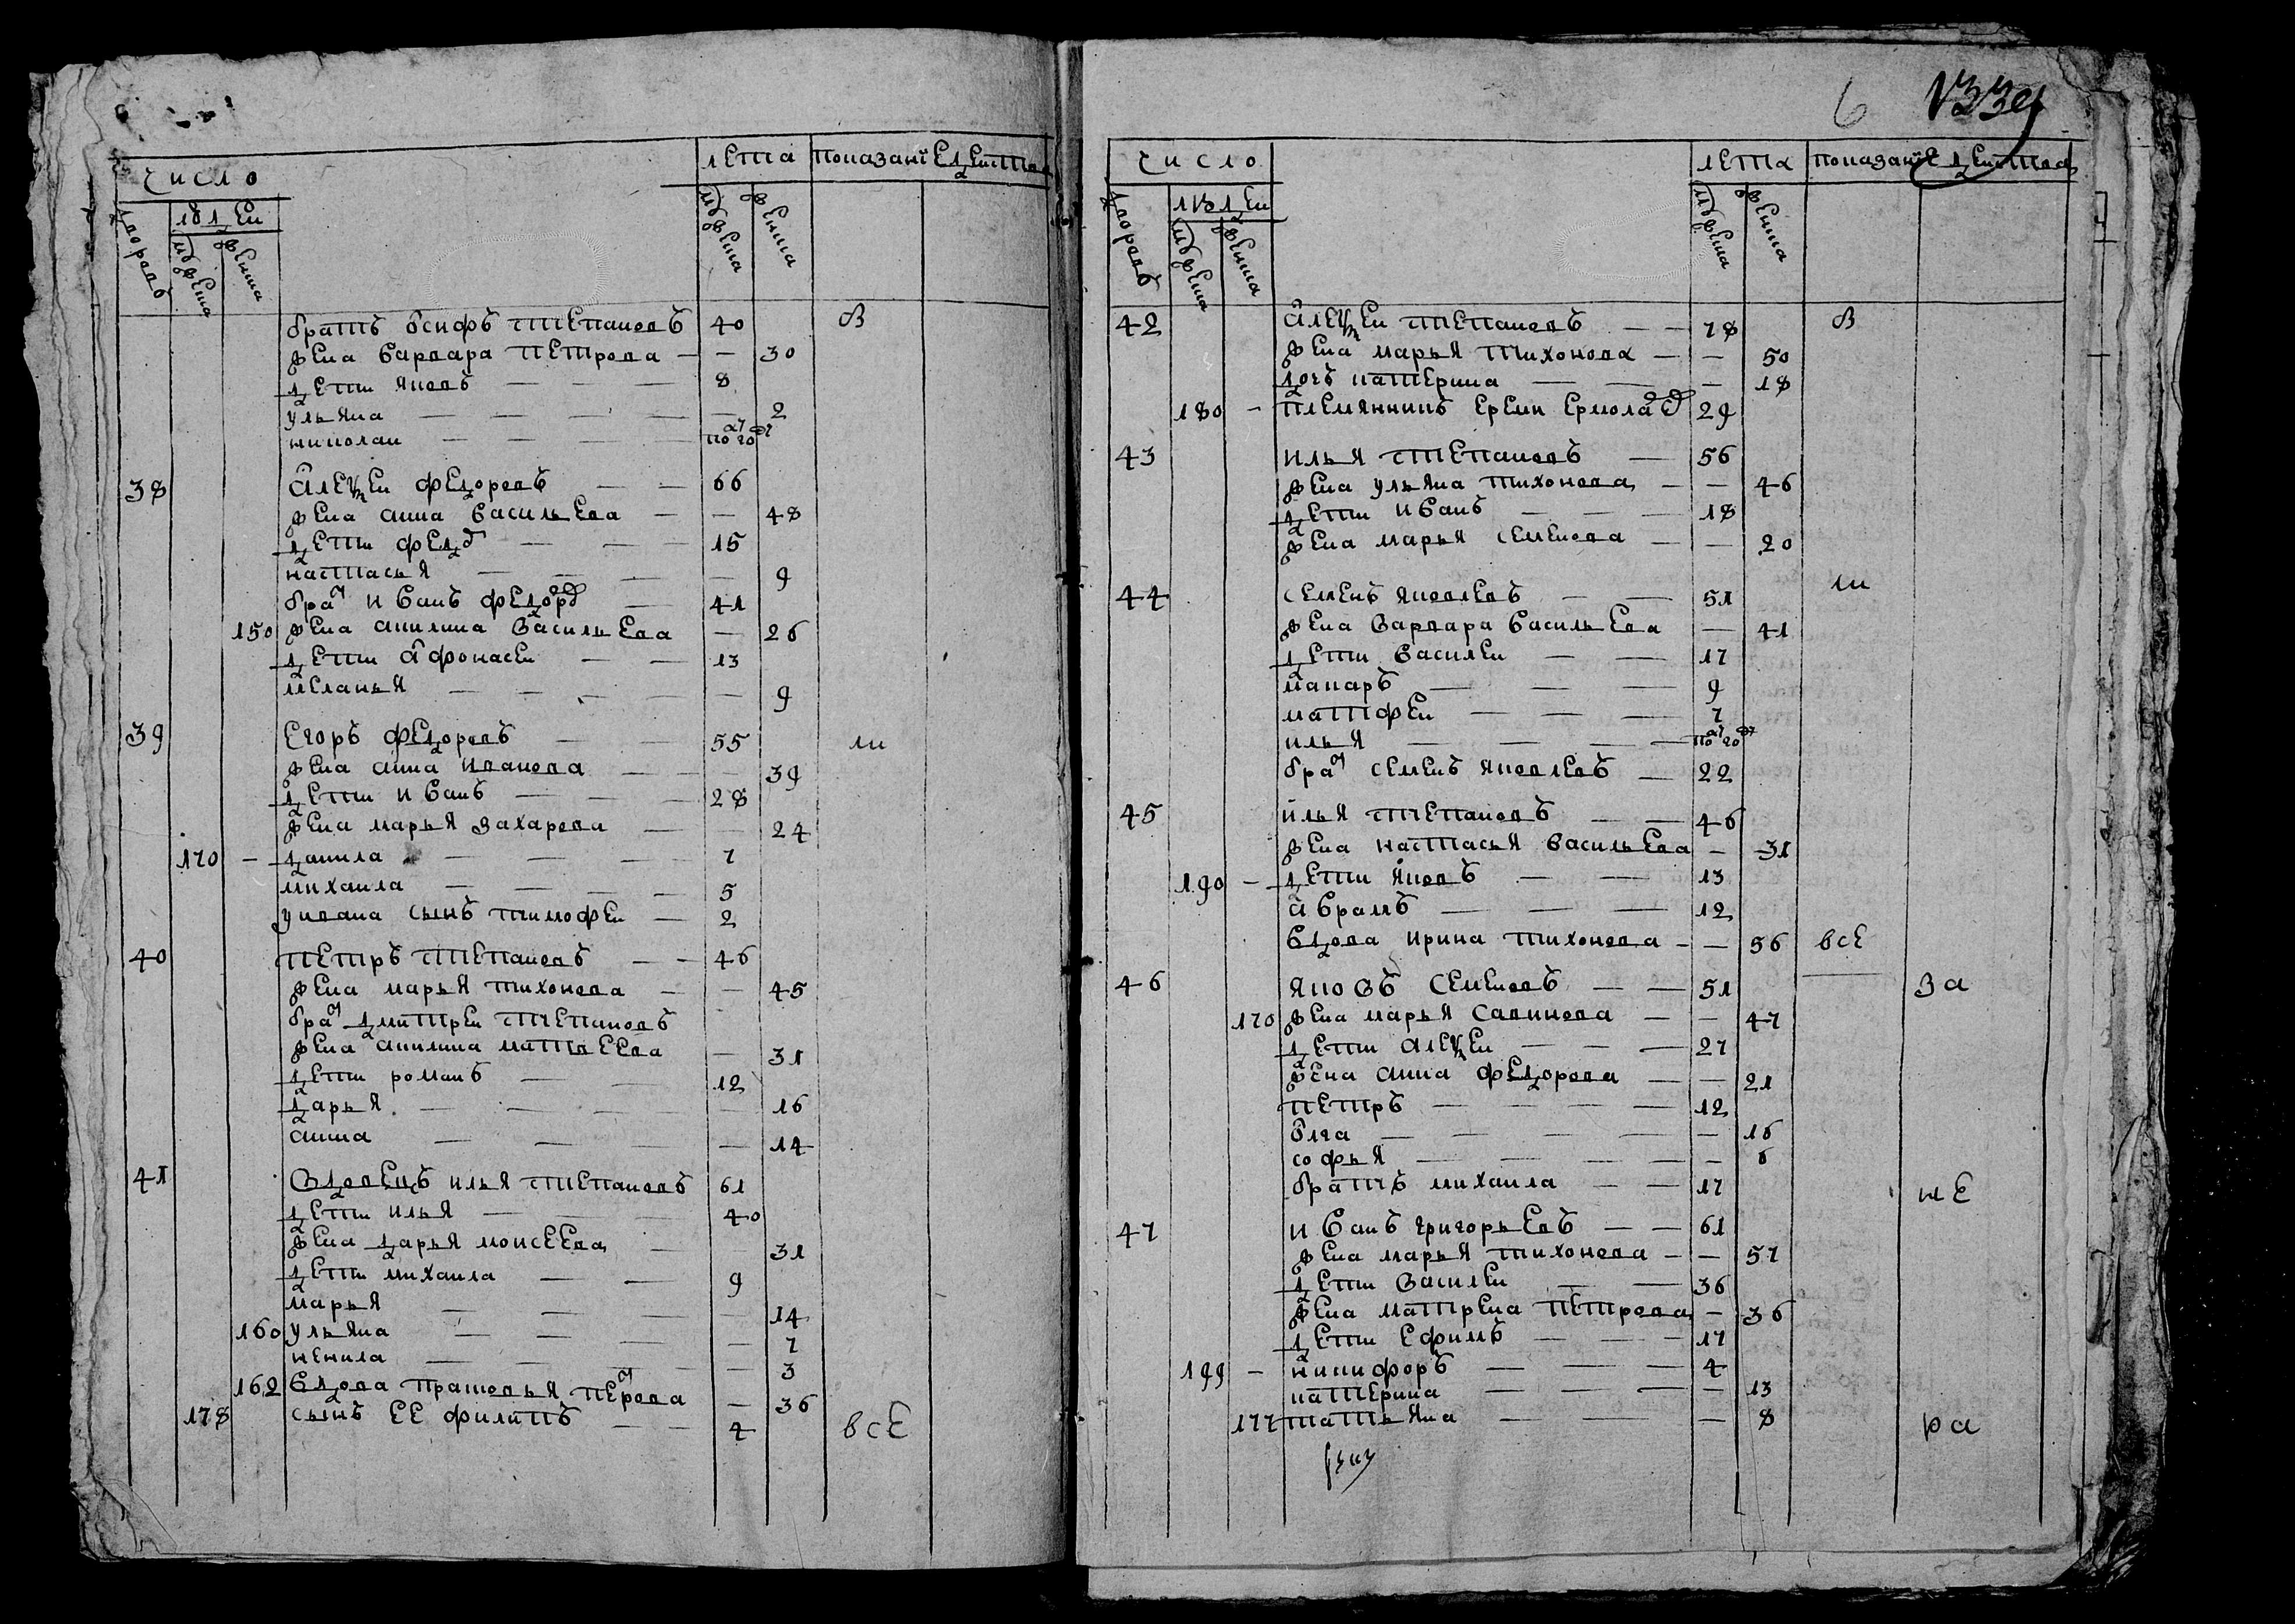 число
лета
показаніе действа
дворовъ
людеи
мужеска
женска
мужеска
женска
братъ осифъ степановъ — 40 в
жена варвара петрова — — 30
дети яковъ — — — 8
ульяна — — — — — 2
николаи — — — по год
38 алеѯеи федоровъ — — 66
жена анна васильева — — 48
дети федоръ — — — 15
настасья — — — — 9
братъ иванъ федоровъ — 41
150 жена акилина васильева — 26
дети афонасеи — — 13
меланья — — — — — 9
39 егоръ федоровъ — — 55 ш
жена анна иванова — — 39
дети иванъ — — — 28
жена марья захарова — — 24
170 — данила — — — 7
михаила — — — — 5
у ивана сынъ тимофеи — 2
40 петръ степановъ — — 46
жена марья тихонова — — 45
братъ дмитреи степановъ
жена акилина матвеева — 31
дети романъ — — 12
дарья — — — — 16
анна — — — — 14
41 вдовецъ илья степановъ 61
дети илья — — — 40
жена дарья моисеева — 31
дети михаила — — 9
марья — — — — 14
160 ульяна — — — — 7
ненила — — — — 3
162 вдова прасковья петрова — 36
178 сынъ ее филипъ — — 4 всЕ
6
число
лета
показаніе действа
дворовъ
людеи
мужеска
женска
мужеска
женска
42 алеѯеи степановъ — — 78 в
жена марья тихонова — — 50
дочь катерина — — — 18
180 — племянникъ ереми ермолаевъ 29
43 илья степановъ — 56
жена ульяна тихонова — — 46
дети иванъ — — — 18
жена марья семенова — — 20
44 семенъ яковлевъ — — 51 ш
жена варвара васильева — 41
дети василеи — — 17
макаръ — — — 9
матфеи — — — 7
илья — — — — по год
братъ семенъ яковлевъ — 22
45 илья степановъ — — 46
жена настасья васильева — 31
190 — дети яковъ — — 13
аврамъ — — — 12
вдова ирина тихонова — — 56 всЕ
46 яковъ семеновъ — — 51 за
170 жена марья савинова — — 47
дети алеѯеи — — — 27
жена анна федорова — — 21
петръ — — — — 12
олга — — — — — 16
софья — — — — — 6
братъ михаила — — 17 нЕ
47 иванъ григорьевъ — — 61
жена марья тихонова — — 57
дети василеи — — 36
жена матрена петрова — 36
дети ефимъ — — — 17
199 — никифоръ — — — 4
катерина — — — — 13
177 татьяна — — — — 8 ра